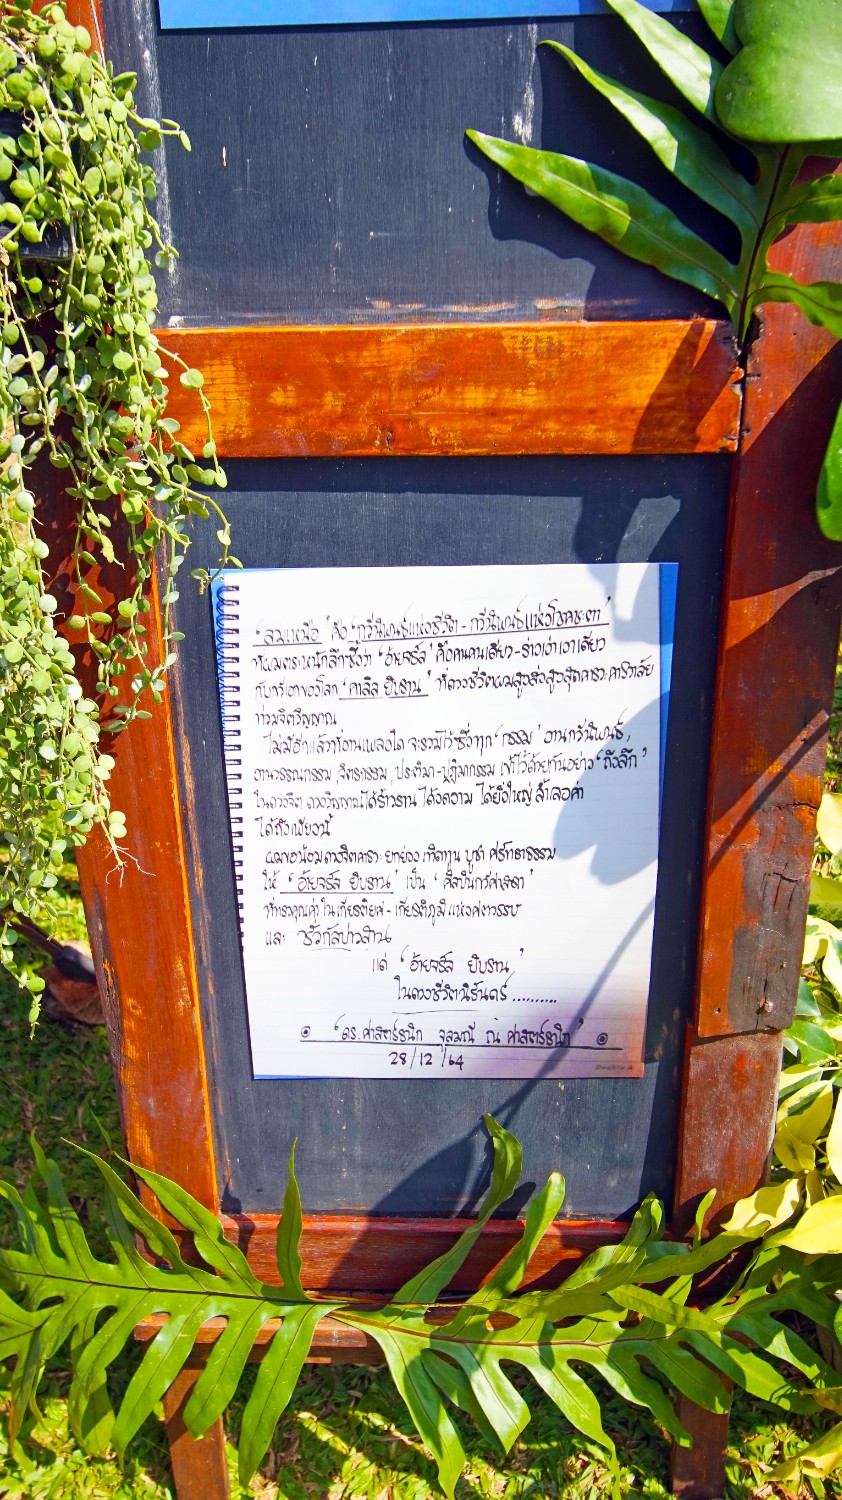 'ลมเหนือ' คือ 'กวีนิพนธ์แห่งชีวิต - กวีนิพนธ์แห่งโชคชะตา'
ที่ผมตระหนักลึกซึ้งว่า 'อ้ายจรัล' คือคนคนเดียว - ร่างเงาเอาเดียว
กับกวีเอกของโลก 'คาลิล ยิบราน' ที่ดวงชีวิตผมสูงส่งสูงสุดคารวะคาริวาลัย
ท่วมจิตวิญญาณ
ไม่มีอีกแล้วที่งานเพลงใด จะรวมไว้ซึ่งทุก 'กรรม' งานกวีนิพนธ์,
งานวรรณกรรม, จิตรกรรม, ประติมา-ปฏิมากรรม เข้าไว้ด้วยกันอย่าง 'ถึงลึก'
ในดวงจิต ดวงวิญญาณได้ร้าวราน ได้งดงาม ได้ยิ่งใหญ่ ล้ำเลอค่า
ได้ถึงเพียงนี้
ผมขอน้อมดวงจิตคารวะ ยกย่อง เทิดทูน บูชา ศรัทธาธรรม
ให้ 'อ้ายจรัล ยิบราน' เป็น 'ศิลปินกวีศาสดา'
ที่ทรงคุณค่า ในเกียรติยศ - เกียรติภูมิ แห่งศตวรรษ
และ ชั่วกัลปาวสาน
แด่ 'อ้ายจรัล ยิบราน'
ในดวงชีวิตนิรันดร์..........
'ดร. ศาสตร์ธนิก จุลมณี ณ ศาสตร์ธนิก'
28/12/64